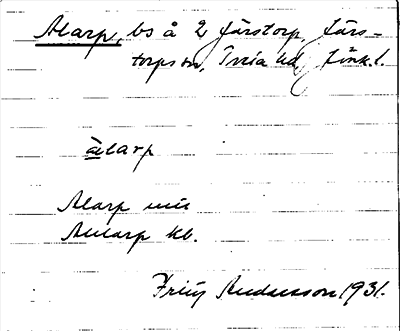 Alarp, bs å 2 Järstorp, Järs-
torps sn, Tveta hd, Jönk. l.
àlarp
Alarp uu
Anlarp kb.
Andersson 1931.